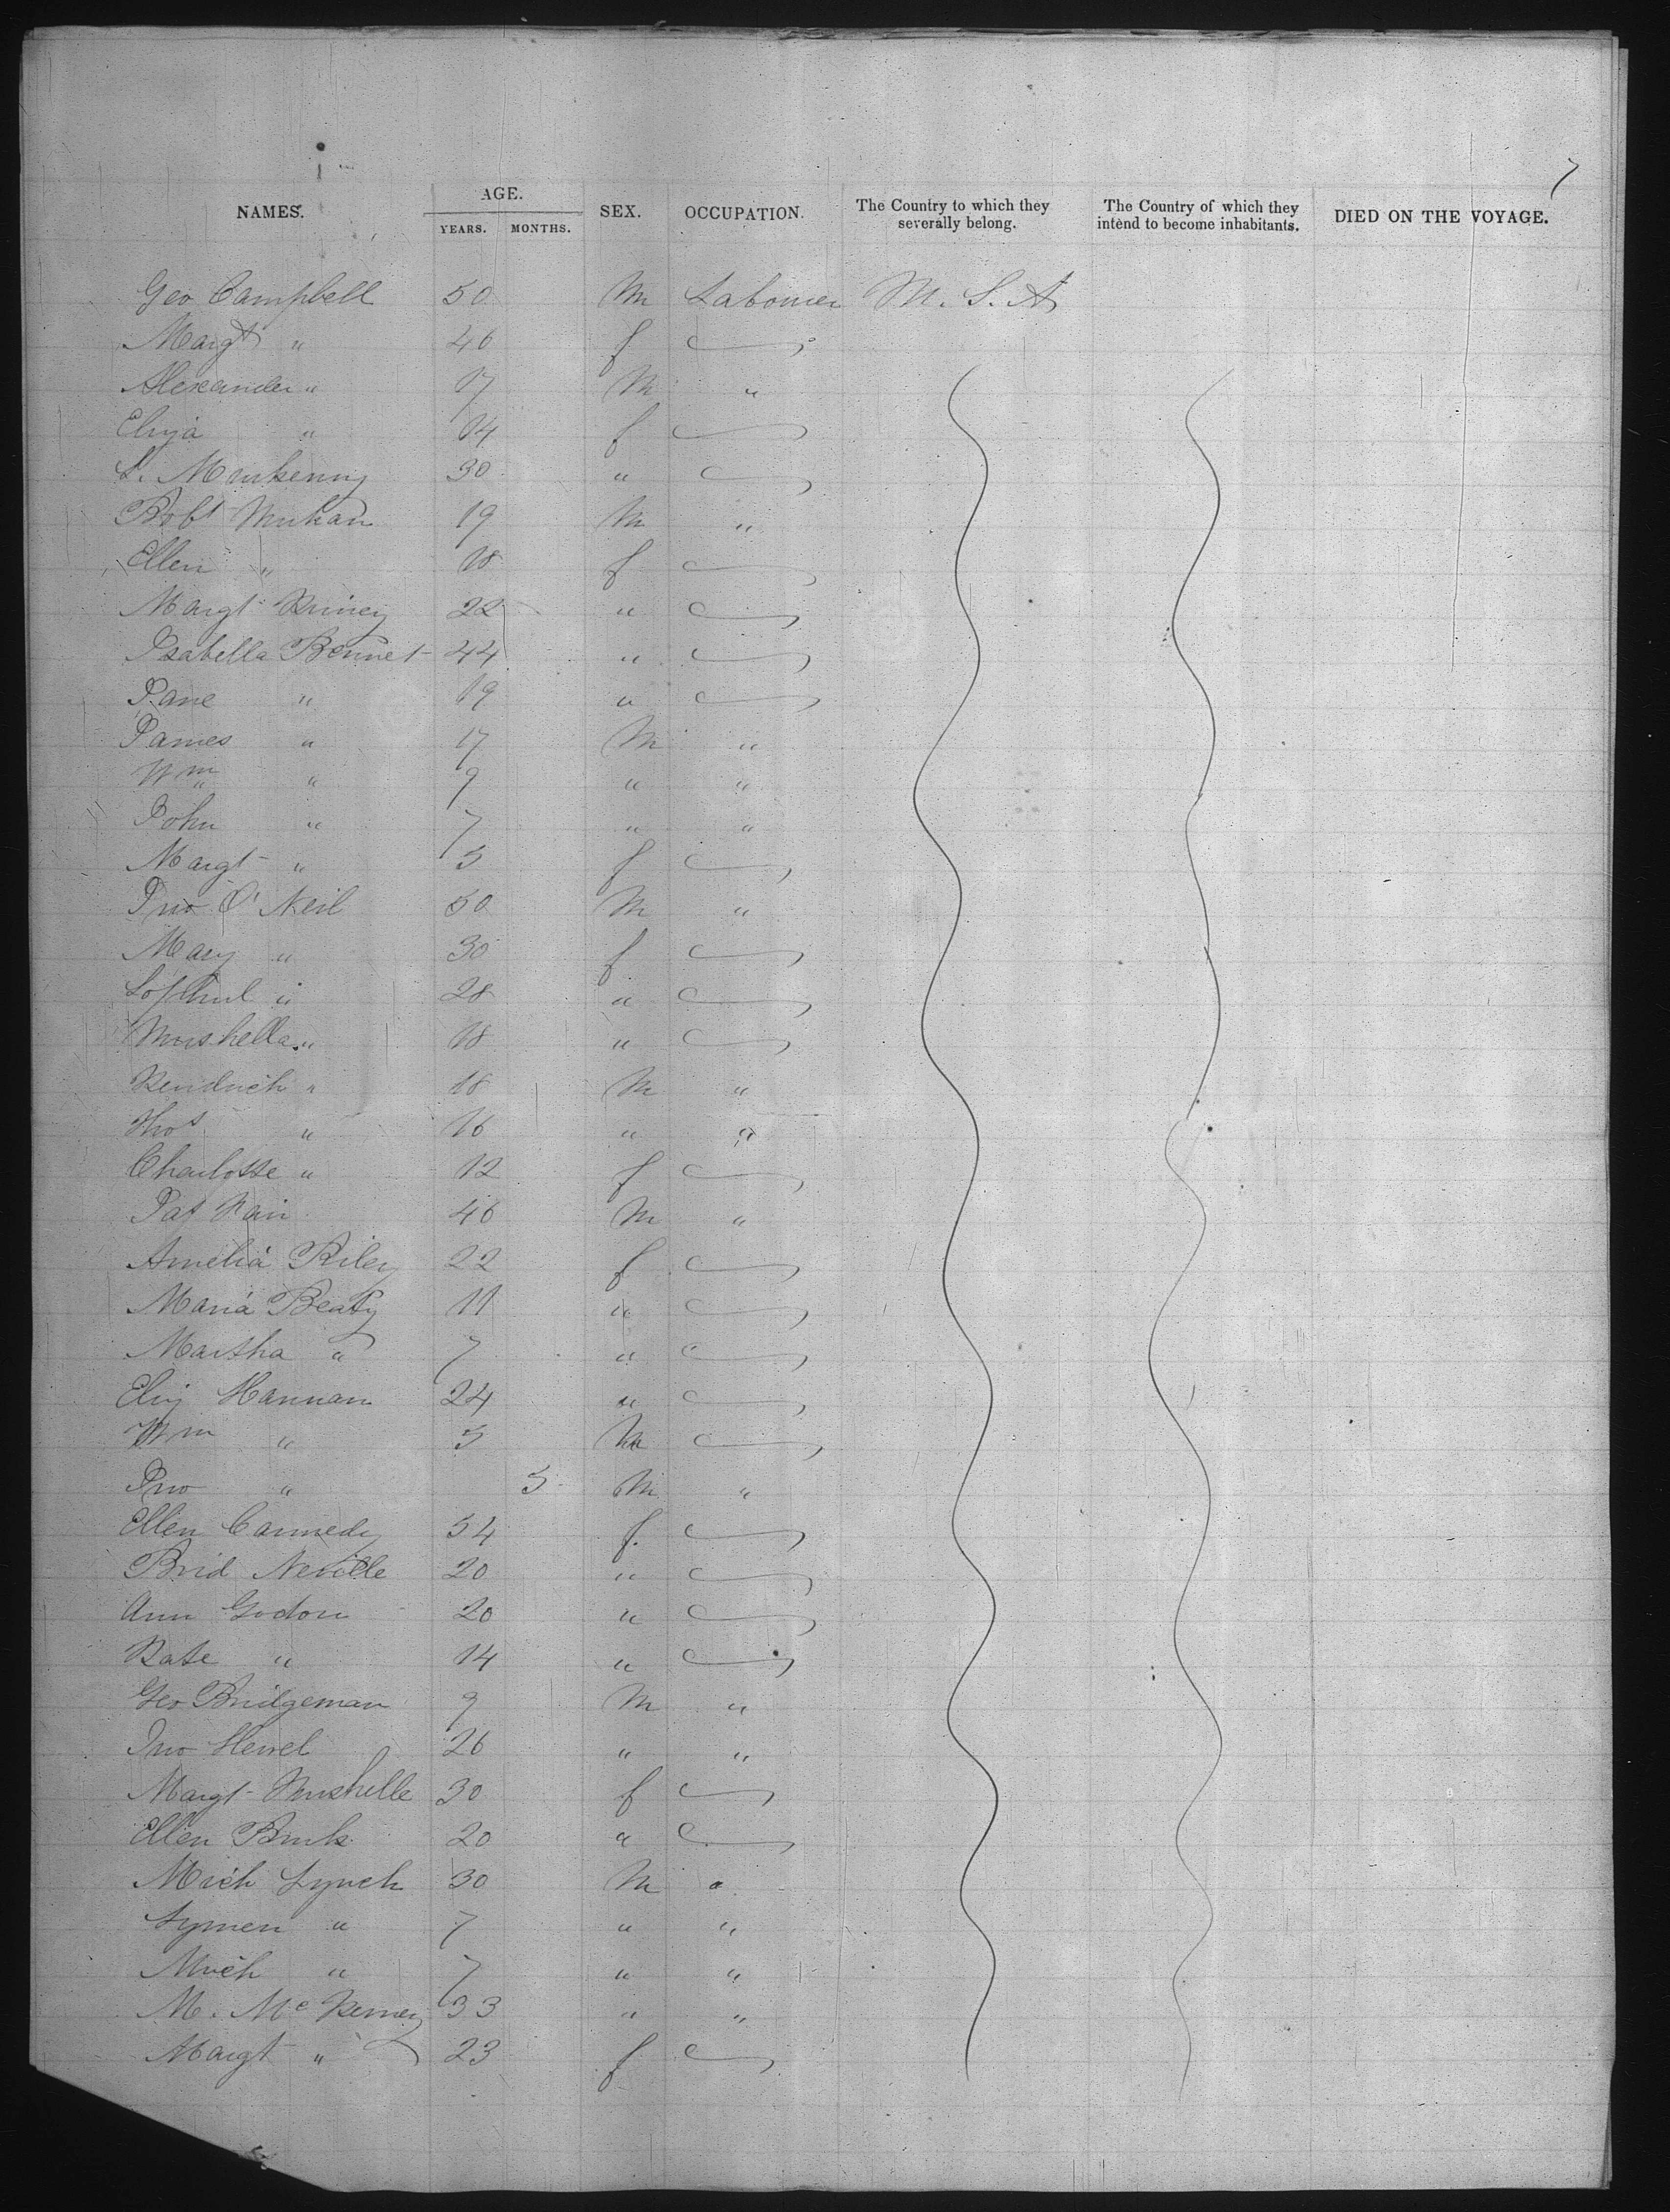 7
NAMES. AGE. SEX. OCCUPATION. The Country to which they severally belong. The Country of which they intend to become inhabitants. DIED ON THE VOYAGE.
YEARS. MONTHS.
Geo Campbell 50 M Labourer
Margt " 46 f
Alexander " 17 M "
Eliza " 14 f
30 "
Robt 19 M "
Ellen " 18 f
Margt 22 "
Isabella Bennet 44 "
Jane " 19 "
James " 17 M "
Wm " 9 " "
John " 7 " "
Margt " 5 f
Jno O'Neil 50 M "
Mary " 30 f
" 28 "
" 18 "
" 18 M "
Thos " 16 " "
Charlotte " 12 f
Pat 46 M "
Amelia Riley 22 f
Maria Beaty 11 "
Martha " 7 "
Eliz Hannan 24 "
Wm " 5 M
Jno " 5 M "
Ellen Cannedy 54 f.
Brid Neville 20 "
Ann Godon 20 "
Kate " 14 "
Geo Bridgeman 9 M "
Jno 26 " "
Margt 30 f
Ellen 20 "
Mich Lynch 30 M "
" 7 " "
Mich " 7 " "
M. Mc 33 " "
Margt " 23 f